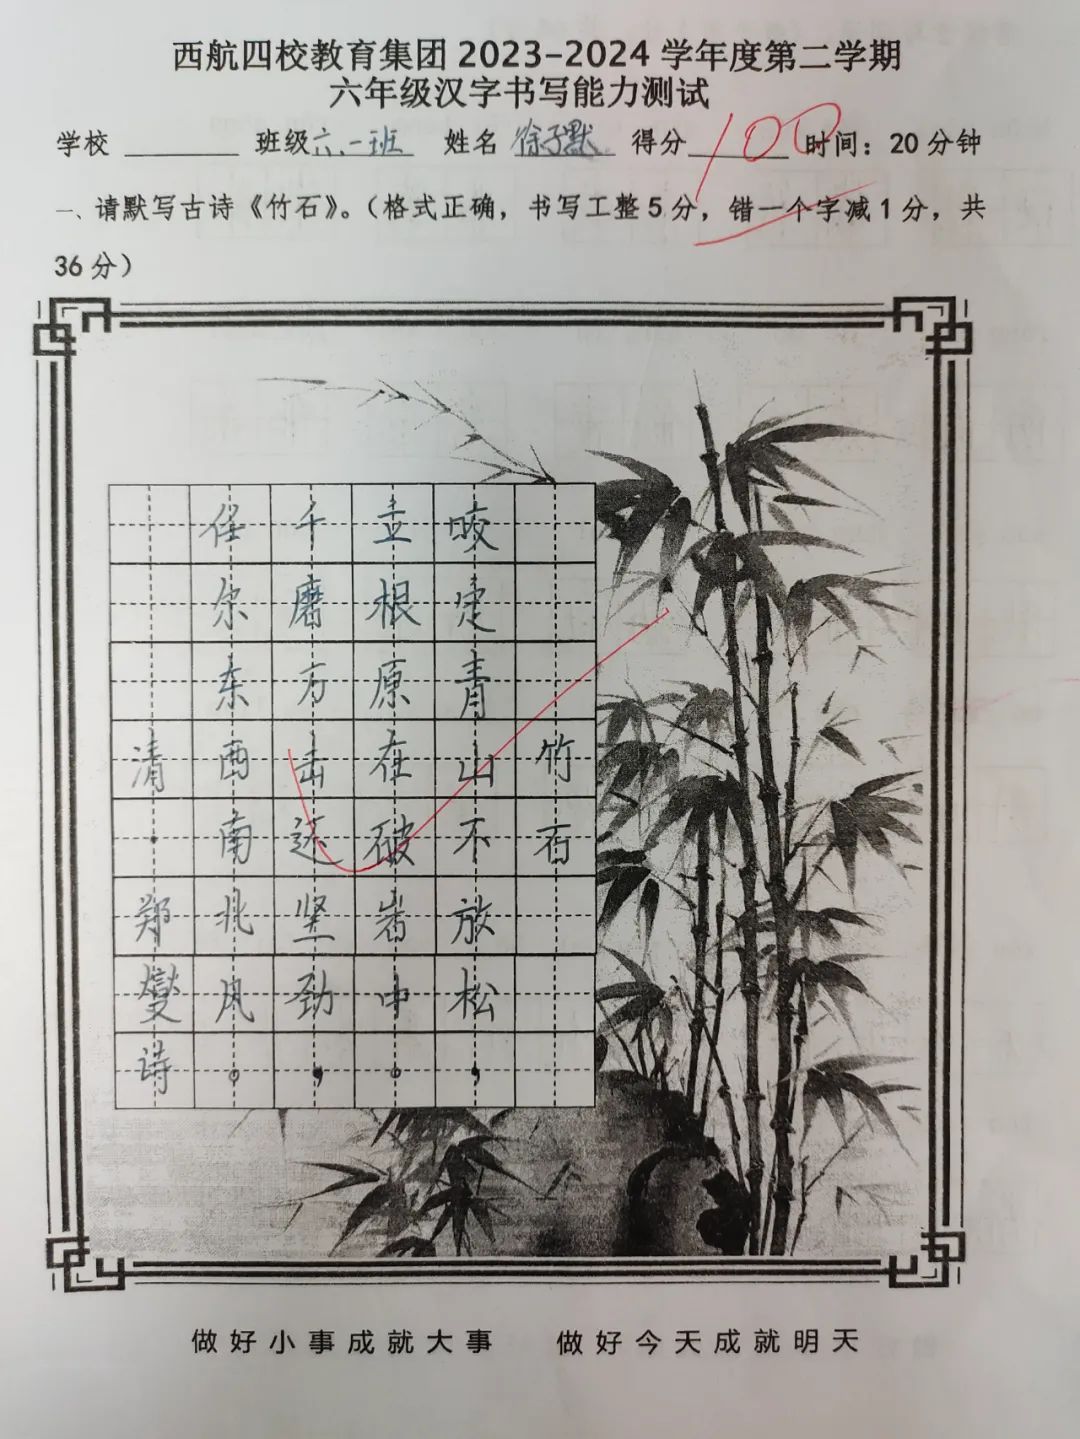 西航四校教育集团 2023-2024 学年度第二学期
六年级汉字书写能力测试
学校 ________ 班级六.一班 姓名 徐子默 得分 100 时间：20 分钟
一、请默写古诗《竹石》。（格式正确，书写工整 5 分，错一个字减 1 分，共
36 分）
竹石
咬定青山不放松，
立根原在破岩中。
千磨万击还坚劲，
任尔东西南北风。
清·郑燮诗
做好小事成就大事 做好今天成就明天